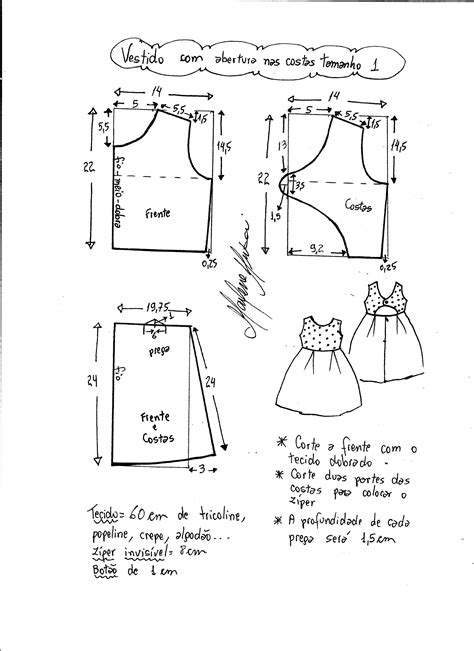 Vestido com abertura nas costas tamanho 1
14
5
5,5
1,5
5,5
22
14,5
fio-meio-dobra
Frente
0,25
14
5
5,5
1,5
13
22
3,5
14,5
1,5
Costas
9,2
0,25
19,75
1
6
prega
24
fio
24
Frente
e
Costas
3
* Corte a frente com o
tecido dobrado.
* Corte duas partes das
costas para colocar o
zíper
* A profundidade de cada
prega será 1,5cm
Tecido= 60cm de tricoline,
popeline, crepe, algodão...
Zíper invisível= 8cm
Botão de 1cm